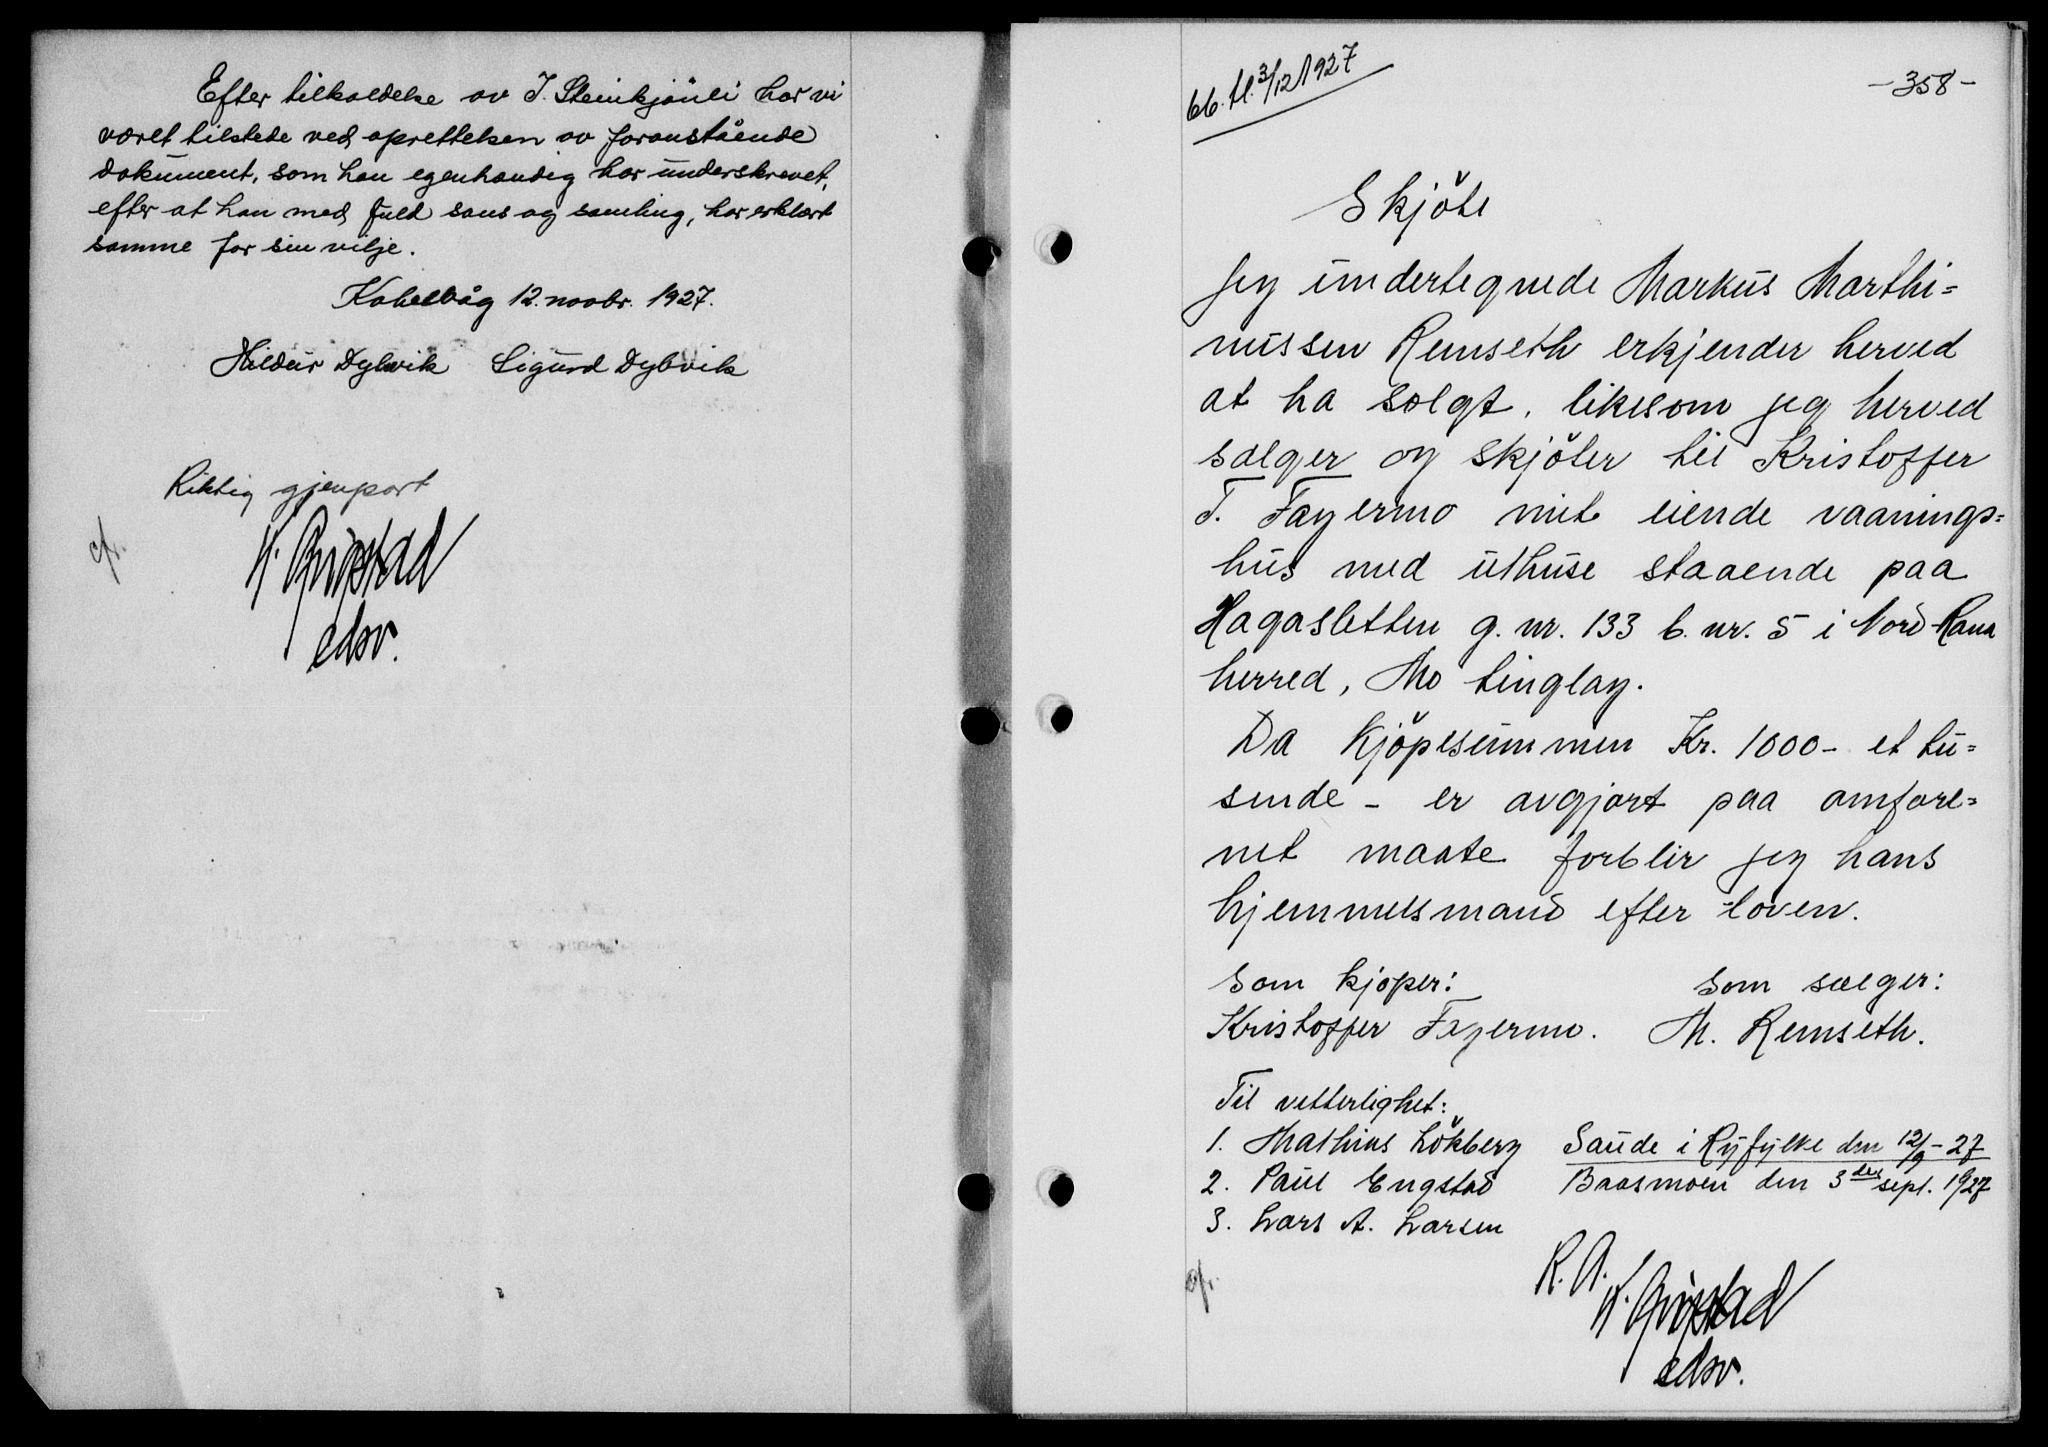 Efter tilkaldelse av J. Steinkjönli har vi
været tilstede ved oprettelsen av foranstående
dokument, som han egenhændig har underskrevet,
efter at han med fuld sans og samling, har erklært
samme for sin vilje.
Kabelvåg 12. novbr. 1927.
Hildur Dybvik Sigurd Dybvik
Riktig gjenpart
cfr.
edsv.
bb. tl. 3/12 1927
- 358 -
Skjöte
Jeg undertegnede Markus Marthi=
nussen Remseth erkjender herved
at ha solgt, likesom jeg herved
sælger og skjöter til Kristoffer
T. Fagermo mit eiende vaanings=
hus med uthuse staaende paa
Hagasletten g. nr. 133 b. nr. 5 i Nord-Rana
herred, Mo tinglag.
Da kjöpesummen Kr. 1000 - et tu=
sende - er avgjort paa omfore=
net maate forblir jeg hans
hjemmelsmand efter loven.
Som kjøper: Som sælger:
Kristoffer Fagermo. M. Remseth.
Til vitterlighet:
1. Mathias Lökberg Saude i Ryfylke den 12/9 - 27
2. Paul Engstad Baasmoen den 3 die sept. 1927
3. Lars A. Larsen
R. A.
cfr.
edsv.